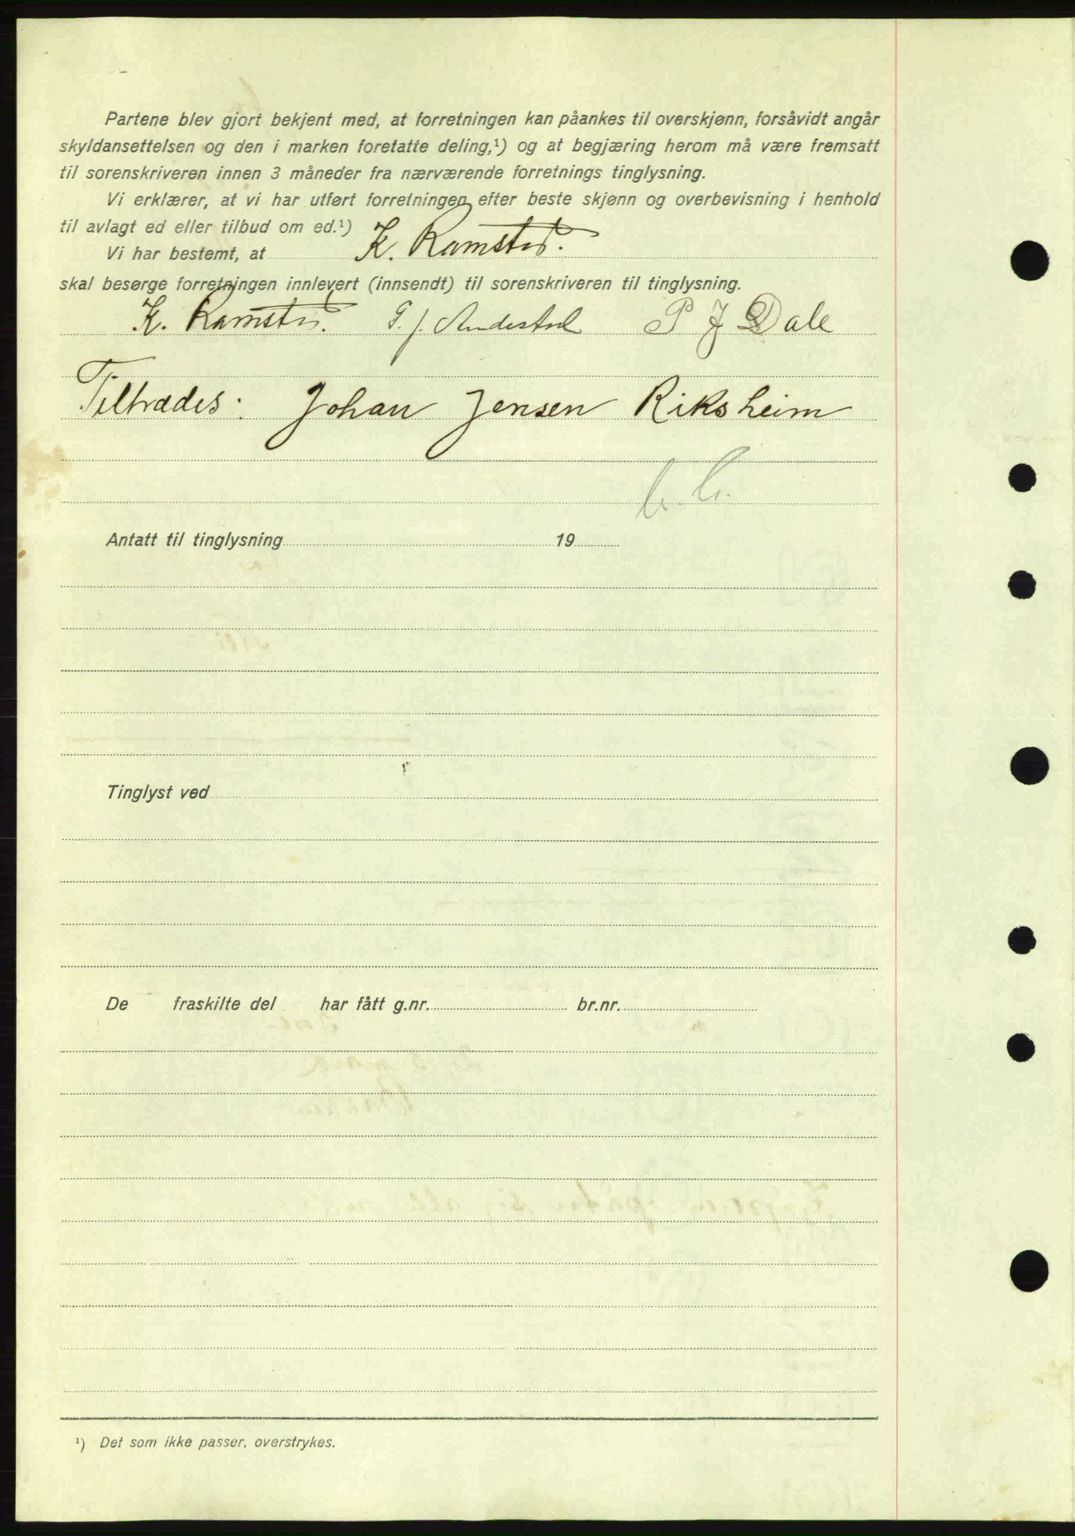 Partene blev gjort bekjent med, at forretningen kan påankes til overskjønn, forsåvidt angår
skyldansettelsen og den i marken foretatte deling,¹) og at begjæring herom må være fremsatt
til sorenskriveren innen 3 måneder fra nærværende forretnings tinglysning.
Vi erklærer, at vi har utført forretningen efter beste skjønn og overbevisning i henhold
til avlagt ed eller tilbud om ed.¹)
Vi har bestemt, at K. Ramstad.
skal besørge forretningen innlevert (innsendt) til sorenskriveren til tinglysning.
K. Ramstad. P J Dale
Tiltrædes: Johan Jensen Riksheim
Antatt til tinglysning 19
Tinglyst ved
De fraskilte del har fått g.nr. br.nr.
¹) Det som ikke passer, overstrykes.